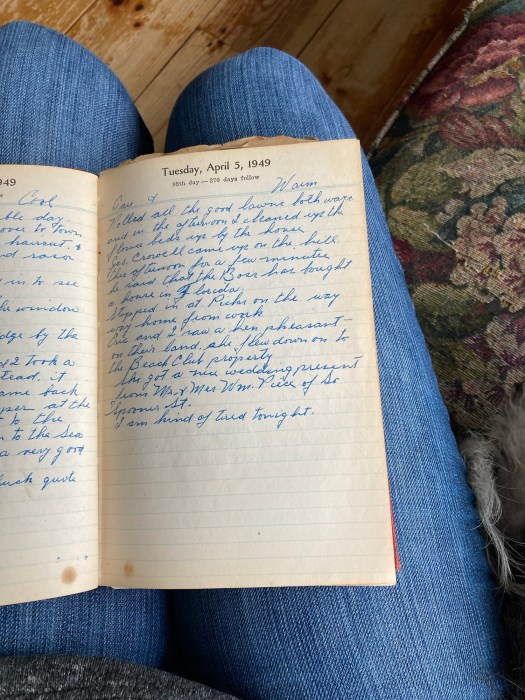 949
Cool
ble day
over to Town
haircut, &
and
in to see
the window
dge by the
& 2 took a
tead, it
came back
per at the
to the
n to the Sea
a very good
guite
Tuesday, April 5, 1949
95th day — 270 days follow
Warm
Rolled all the good lawne both ways
and in the afternoon I cleaned up the
flower beds up by the house
Geo. Crowell came up on the hill
this afternoon for a few minutes
he said that the Boss has bought
a house in Florida
Stopped in at Picks on the way
way home from work
and I saw a hen pheasant
on their land, she flew down on to
the Beach Club property
She got a nice wedding present
from Mr. & Mrs Wm. of So
Spooner St.
I am kind of tired tonight.